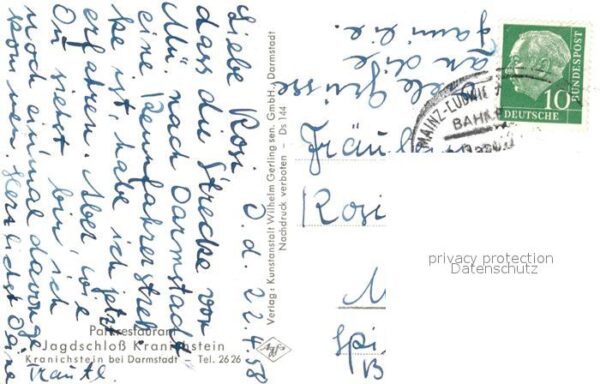 Liebe Rosi O.d. 22.4.58
dass die Strecke von
Mü. nach Darmstadt
eine Rennfahrerstrek
ke ist, habe ich jetzt
erfahren. Aber wie
Du siehst bin ich
noch einmal davonge
kommen. Herzlichst Deine
Traute.
Parkrestaurant
Jagdschloß Kranichstein
Kranichstein bei Darmstadt - Tel. 2626
Verlag: Kunstanstalt Wilhelm Gerling sen. GmbH., Darmstadt
Nachdruck verboten - Ds 144
Agfa
Viele Grüsse
an die
Familie.
10
DEUTSCHE
BUNDESPOST
MAINZ-LUDWIG
BAHNP
Fräul
Rosi
M
Spi
B
privacy protection
Datenschutz